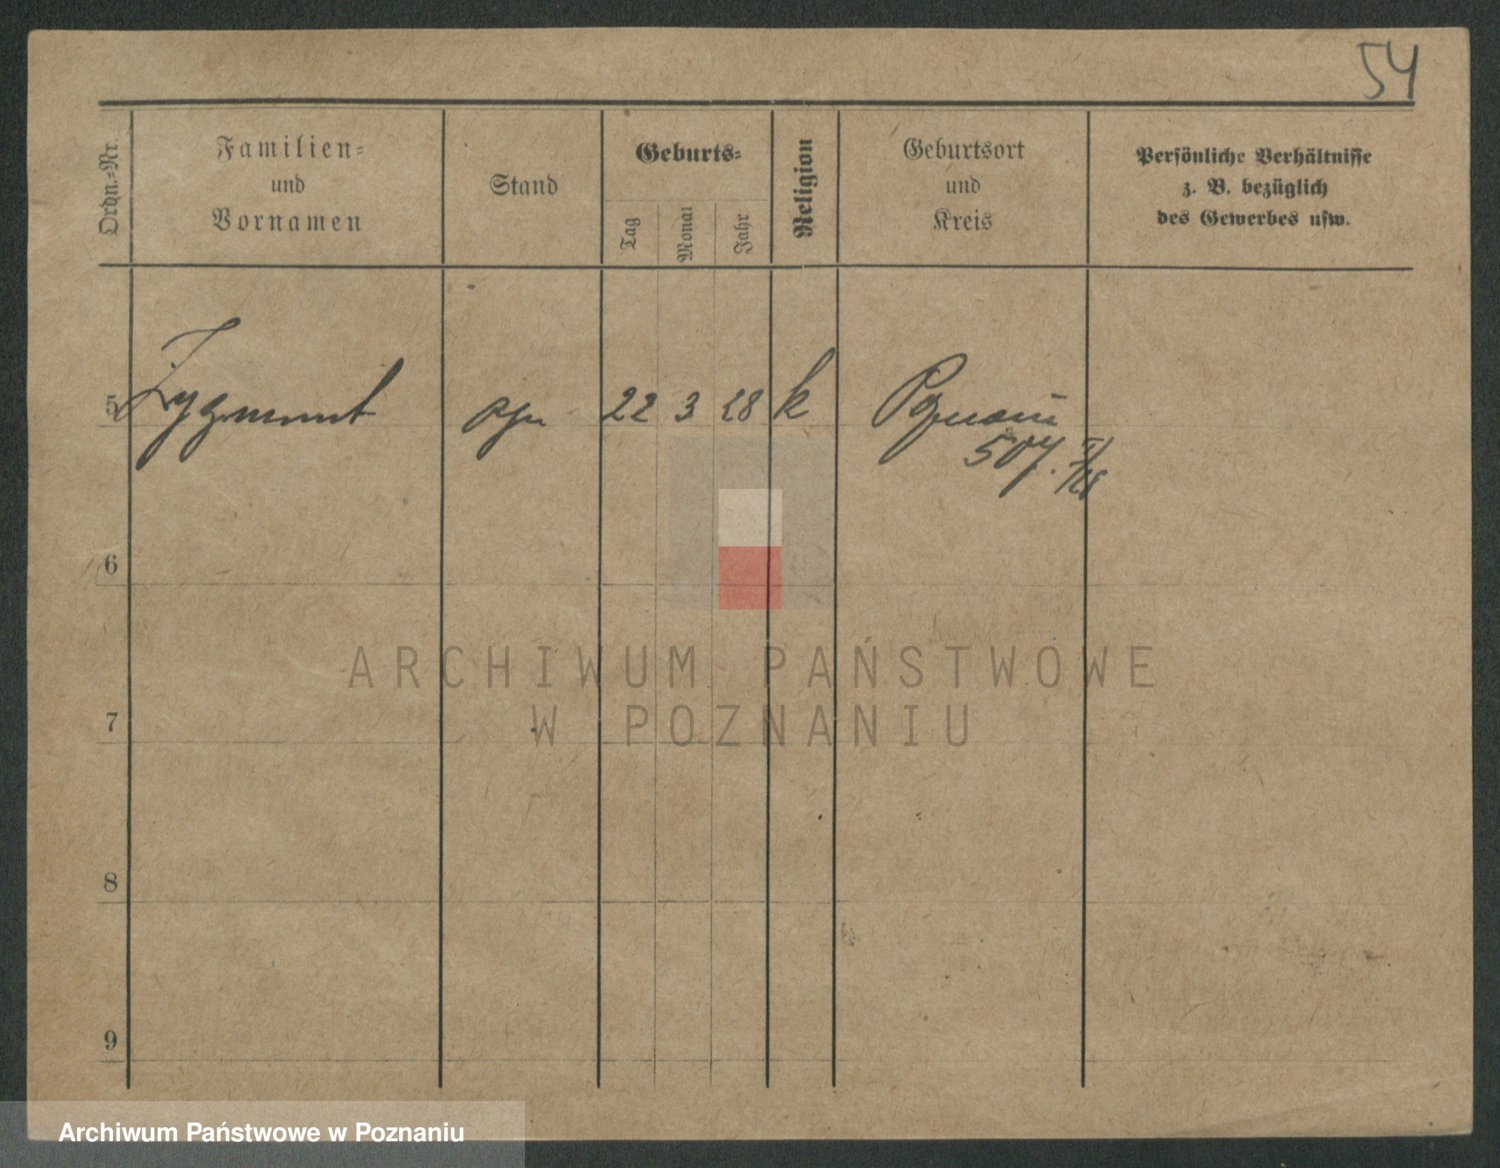 54
Ordn.-Nr.
Familien-
und
Vornamen
Stand
Geburts-
Tag
Monat
Jahr
Religion
Geburtsort
und
Kreis
Persönliche Verhältnisse
z. B. bezüglich
des Gewerbes usw.
5 Zygmunt 22 3 28 k Poznań
507.
6
7
8
9
ARCHIWUM PAŃSTWOWE
W POZNANIU
Archiwum Państwowe w Poznaniu